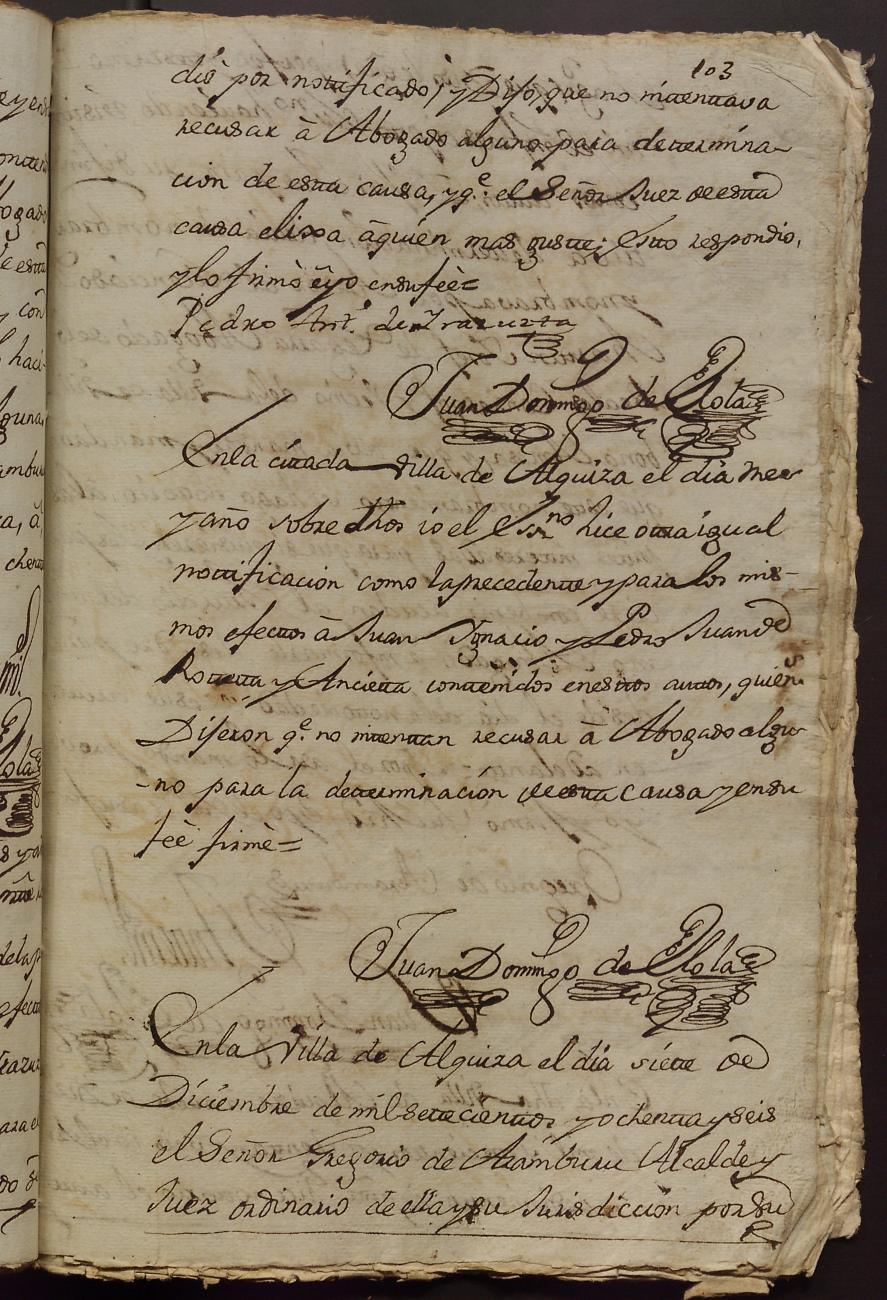 103
dió por nottificado, y Dijo, que no inttenttava
recusar â Abogado alguno para dettermina-
cion de estta causa, y q.e el Señor Juez de estta
causa elixa âquien mas gustte; Estto respondio,
y lo firmò ê yo en su feè=
Pedro Antt.o de Yrazuzta
Juan Domingo de Elola
En la cittada villa de Alquiza el dia mes
y año sobre dhos io el Ess.no hice ottra igual
nottificacion como la precedentte y para los mis-
mos efecttos â Juan Ygnacio y Pedro Juan de
Rotetta y Ancietta conttenidos en esttos auttos, quiens
Dijeron q.e no inttentan recusar â Abogado algu-
-no para la detterminación de estta causa y en su
feè firmè=
Juan Domingo de Elola
En la Villa de Alquiza el dia siette de
Diciembre de mil settecienttos y ochentta y seis
el Señor Gregorio de Aramburu Alcalde y
Juez ordinario de ella y su Jurisdiccion por su